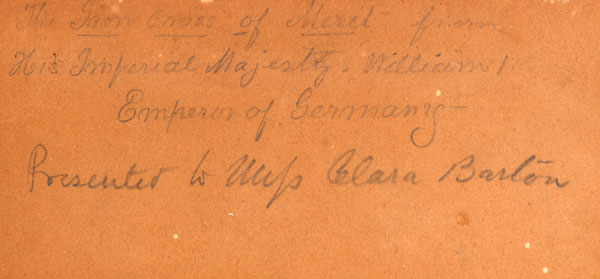 The Iron Cross of Merit from
His Imperial Majesty. William I.
Emperor of Germany—
Presented to Miss Clara Barton